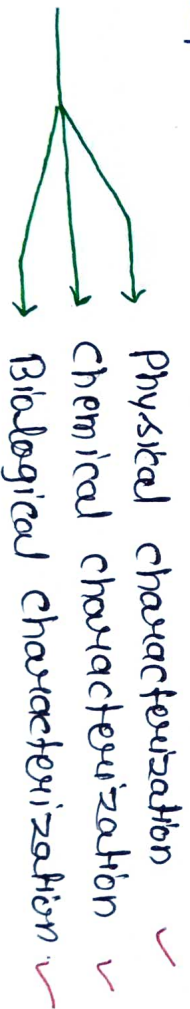 Physical characterization
chemical characterization
Bialogical characterization